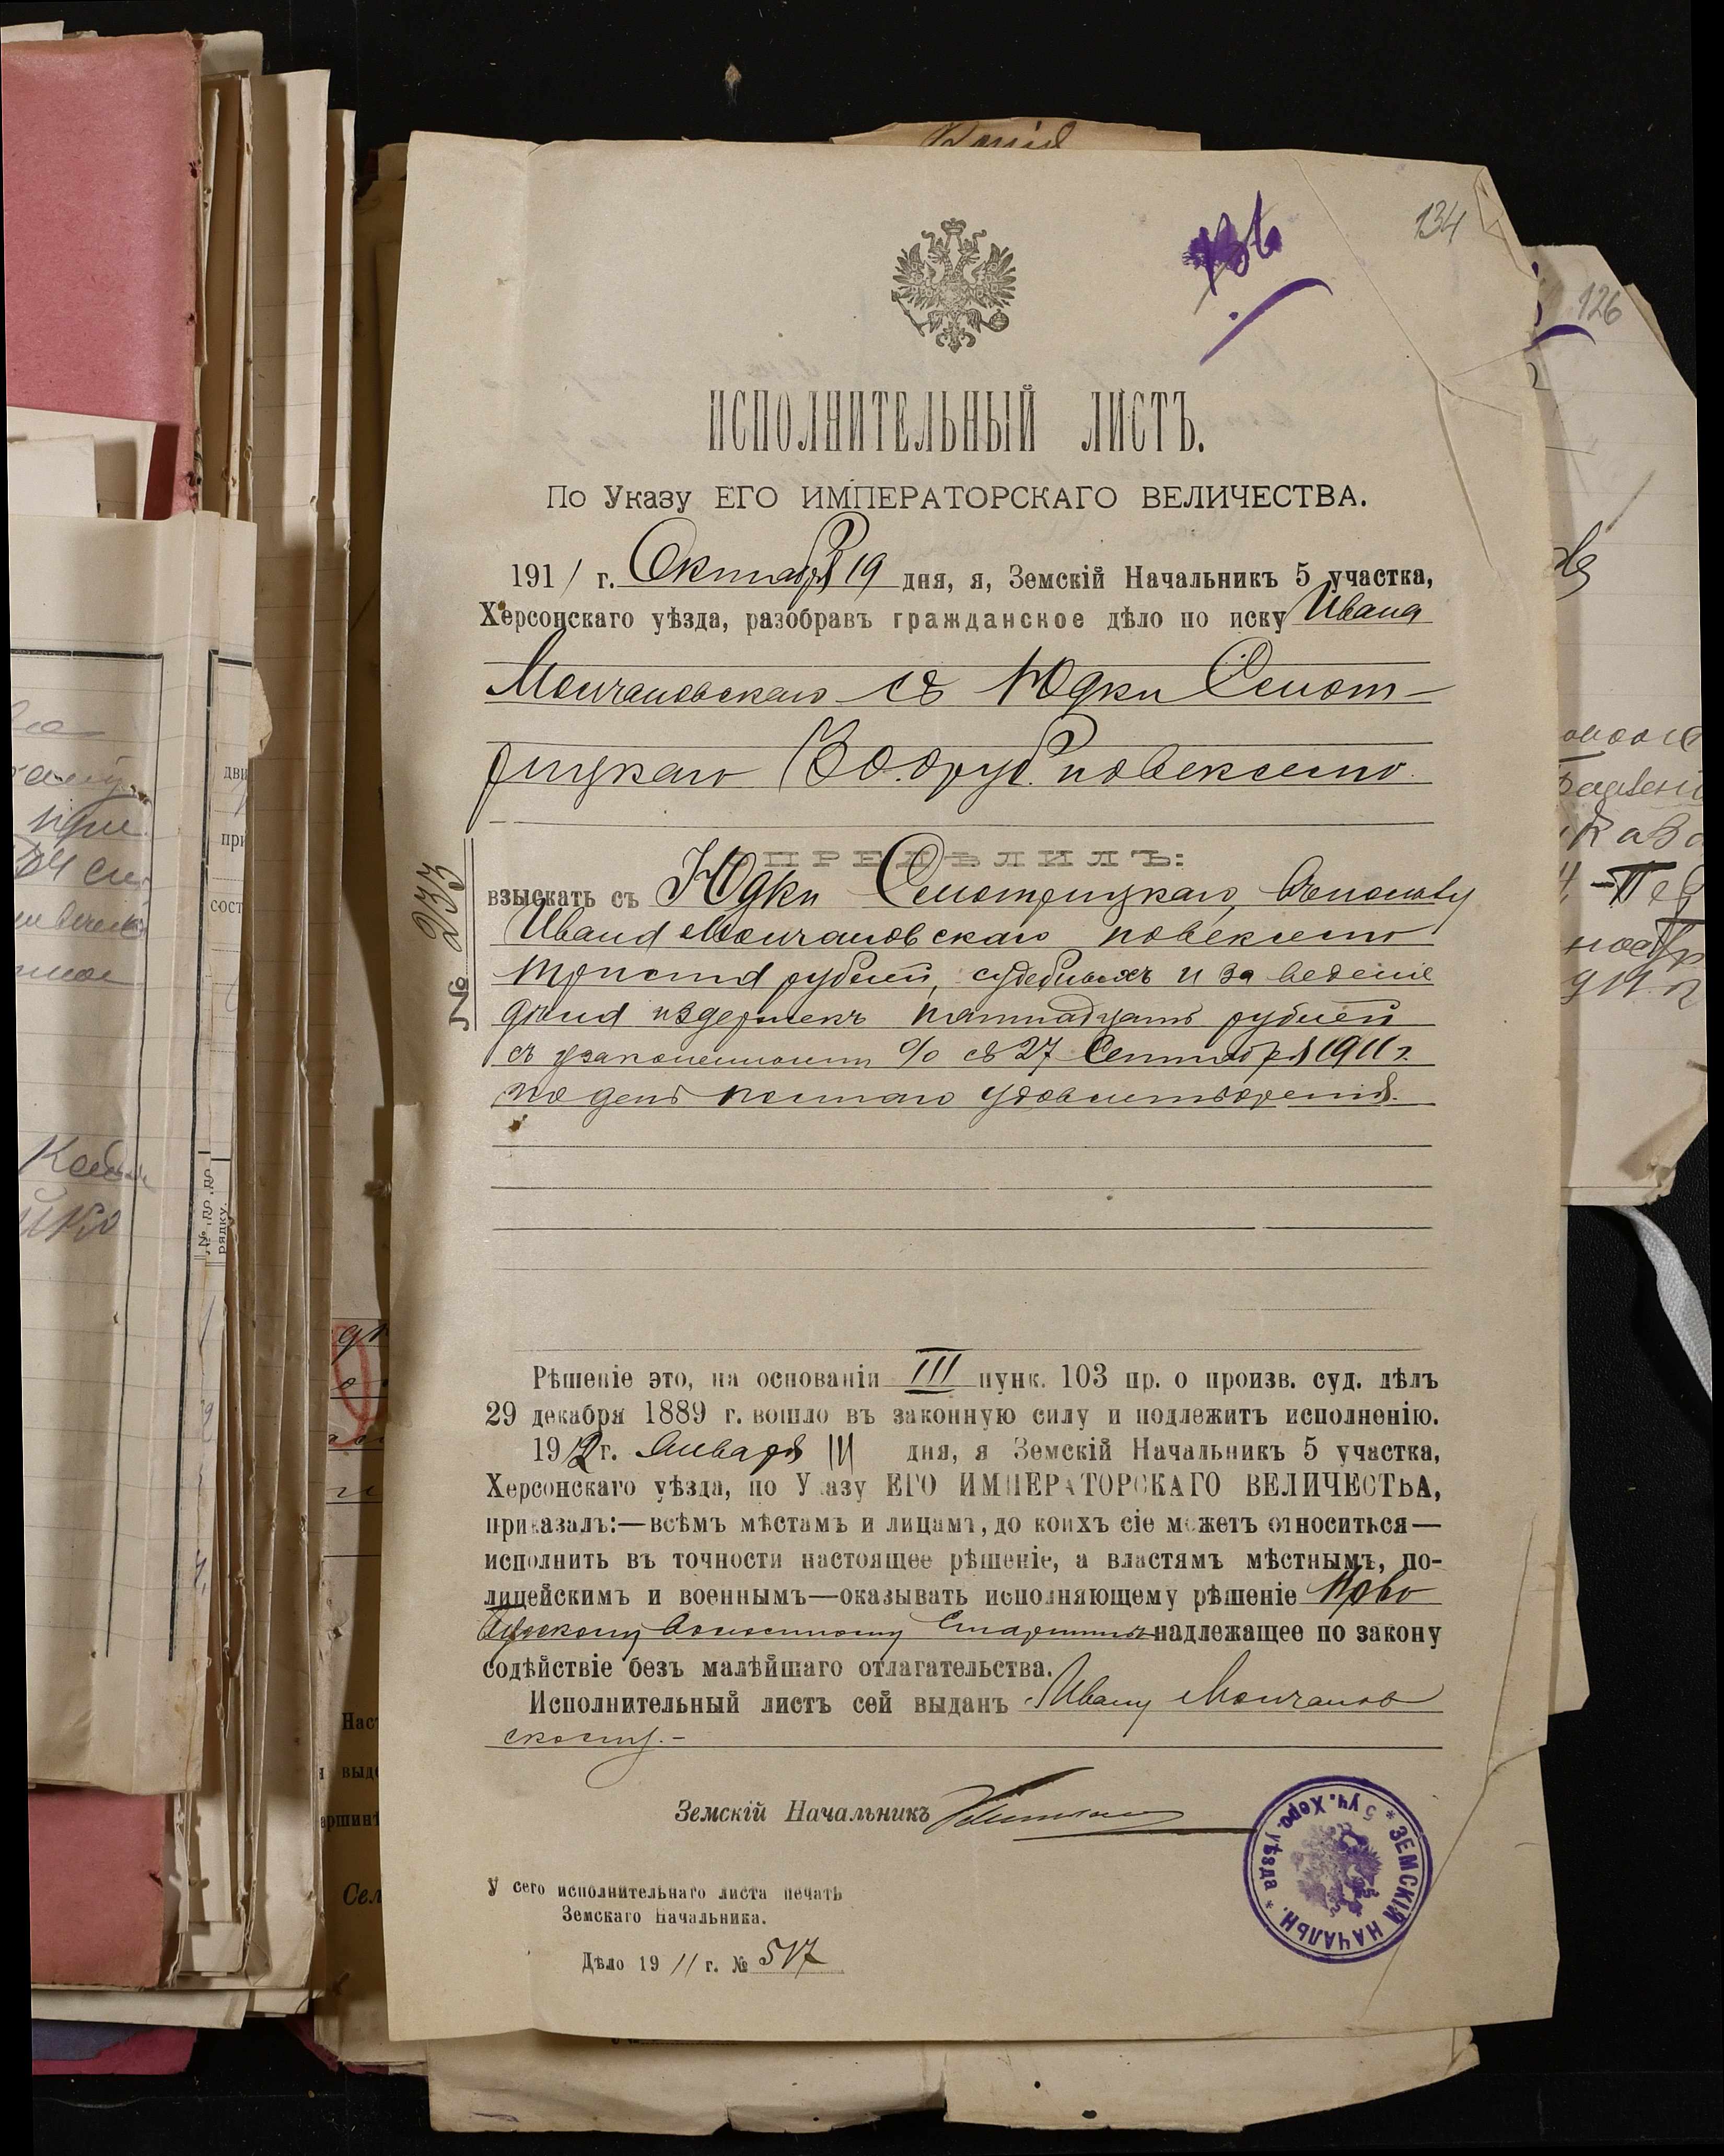 134
126
ИСПОЛНИТЕЛЬНЫЙ ЛИСТЪ.
По Указу ЕГО ИМПЕРАТОРСКАГО ВЕЛИЧЕСТВА.
1911 г. Октября 19 дня, я, Земскій Начальникъ 5 участка,
Херсонскаго уѣзда, разобравъ гражданское дѣло по иску Ивана
Молчановскаго съ Юдки Смот-
рицкаго 300 руб. по векселю
ПРЕДѢЛИЛЪ:
взыскать съ Юдки Смотрицкаго, въ пользу
Ивана Молчановскаго по векселю
триста рублей, судебныхъ и за веденіе
дѣла издержекъ пятнадцать рублей
съ узаконенными % съ 27 Сентября 1911 г.
по день полнаго удовлетворенія.
№ 233
Рѣшеніе это, на основаніи III пунк. 103 пр. о произв. суд. дѣлъ
29 декабря 1889 г. вошло въ законную силу и подлежитъ исполненію.
1912 г. Января дня, я Земскій Начальникъ 5 участка,
Херсонскаго уѣзда, по Указу ЕГО ИМПЕРАТОРСКАГО ВЕЛИЧЕСТВА,
приказалъ:—всѣмъ мѣстамъ и лицамъ, до коихъ сіе можетъ относиться—
исполнить въ точности настоящее рѣшеніе, а властямъ мѣстнымъ, по-
лицейскимъ и военнымъ—оказывать исполняющему рѣшеніе Ново
Волостному Старшинѣ надлежащее по закону
содѣйствіе безъ малѣйшаго отлагательства.
Исполнительный листъ сей выданъ Ивану Молчанов
скому.-
Земскій Начальникъ
ЗЕМСКІЙ НАЧАЛЬН. * 5 уч. Херс. уѣзда *
У сего исполнительнаго листа печать
Земскаго Начальника.
Дѣло 1911 г. № 517